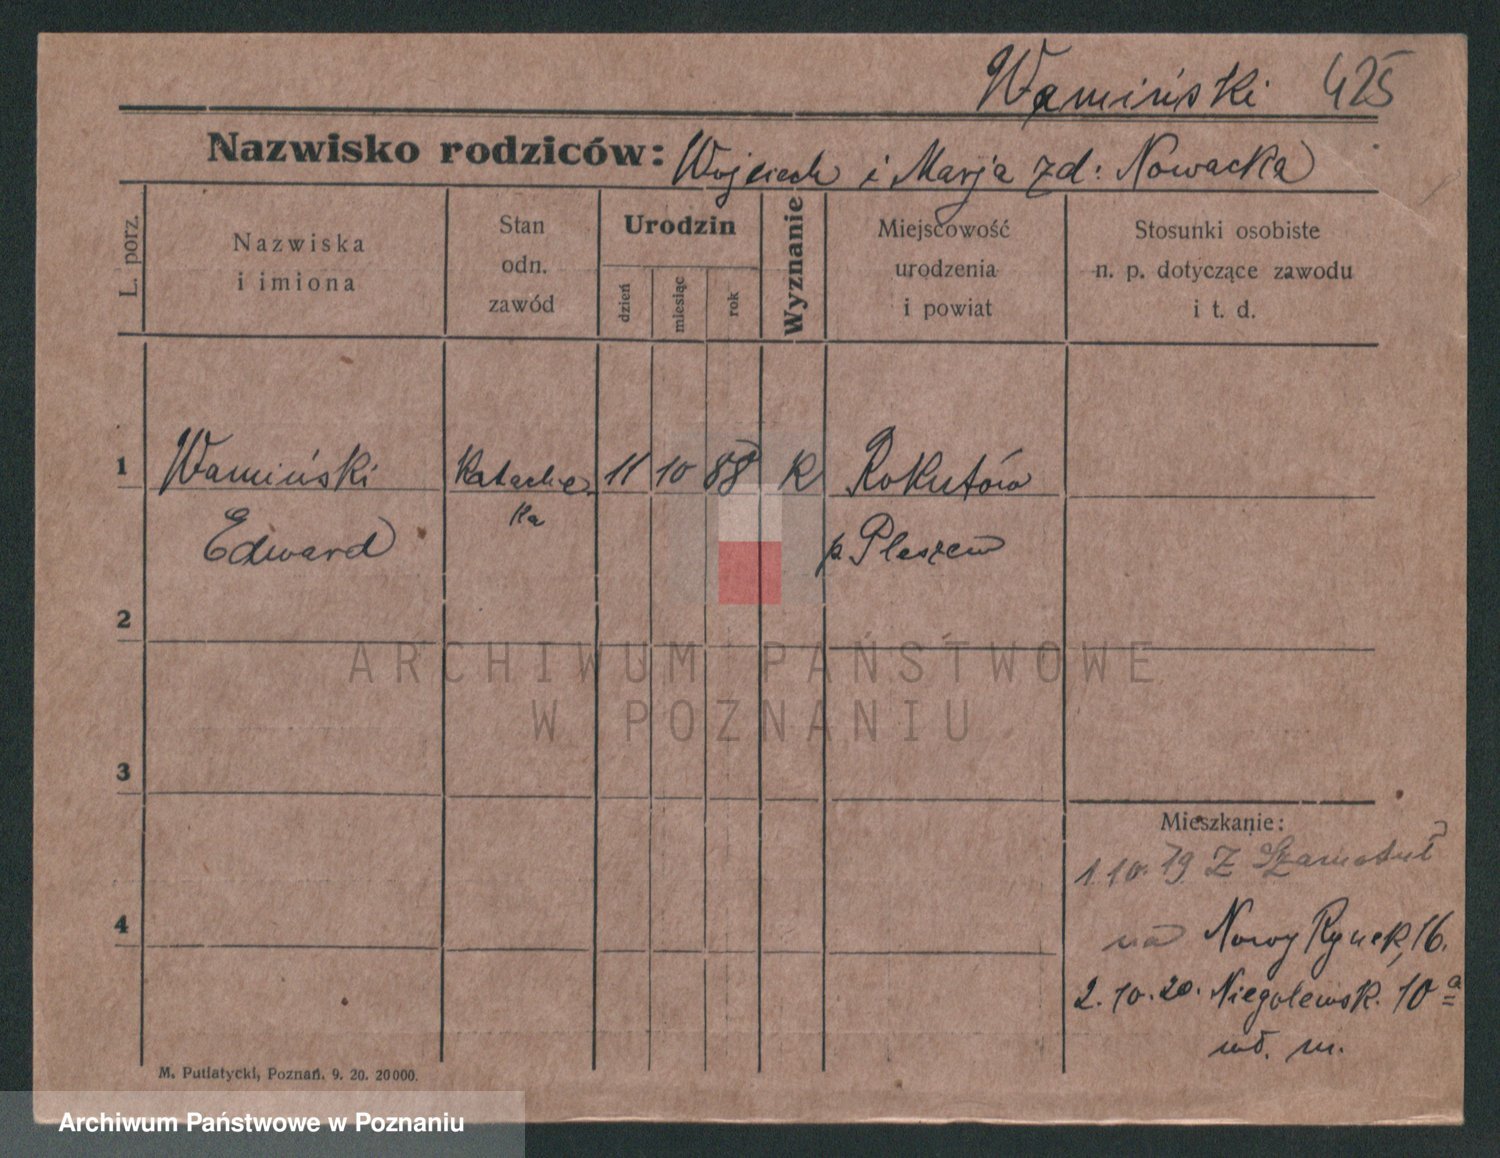 Wamiński 425
Nazwisko rodziców: Wojciech i Marja zd: Nowacka
L. porz.
Nazwiska
i imiona
Stan
odn.
zawód
Urodzin
dzień
miesiąc
rok
Wyznanie
Miejscowość
urodzenia
i powiat
Stosunki osobiste
n. p. dotyczące zawodu
i t. d.
1 Wamiński 11 10 88 K Rokutów
Edward p. Pleszew
2
3
4
Mieszkanie:
1.10.19 Z Szamotuł
na Nowy Rynek, 16.
2.10.20. Niegolewsk. 10a
wł. m.
M. Putiatycki, Poznań. 9. 20. 20000.
ARCHIWUM PAŃSTWOWE
W POZNANIU
Archiwum Państwowe w Poznaniu